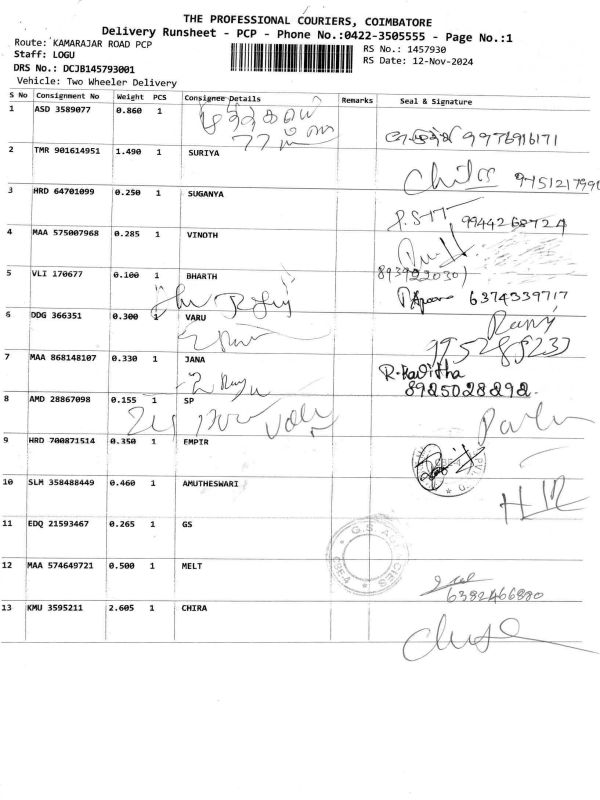 THE PROFESSIONAL COURIERS, COIMBATORE
Delivery Runsheet - PCP - Phone No.:0422-3505555 - Page No.:1
Route: KAMARAJAR ROAD PCP
RS No.: 1457930
Staff: LOGU
RS Date: 12-Nov-2024
DRS No.: DCJB145793001
Vehicle: Two Wheeler Delivery
S No Consignment No Weight PCS Consignee Details Remarks Seal & Signature
1 ASD 3589077 0.860 1
9976916171
2 TMR 901614951 1.490 1 SURIYA
3 HRD 64701099 0.250 1 SUGANYA
9944268724
4 MAA 575007968 0.285 1 VINOTH
5 VLI 170677 0.100 1 BHARTH
6374339717
6 DDG 366351 0.300 1 VARU
Rani
7 MAA 868148107 0.330 1 JANA
R.Kavitha
8925028292.
8 AMD 28867098 0.155 1 SP
9 HRD 700871514 0.350 1 EMPIR
10 SLM 358488449 0.460 1 AMUTHESWARI
11 EDQ 21593467 0.265 1 GS
G.S. AGENCIES
CBE-4
12 MAA 574649721 0.500 1 MELT
6382466880
13 KMU 3595211 2.605 1 CHIRA